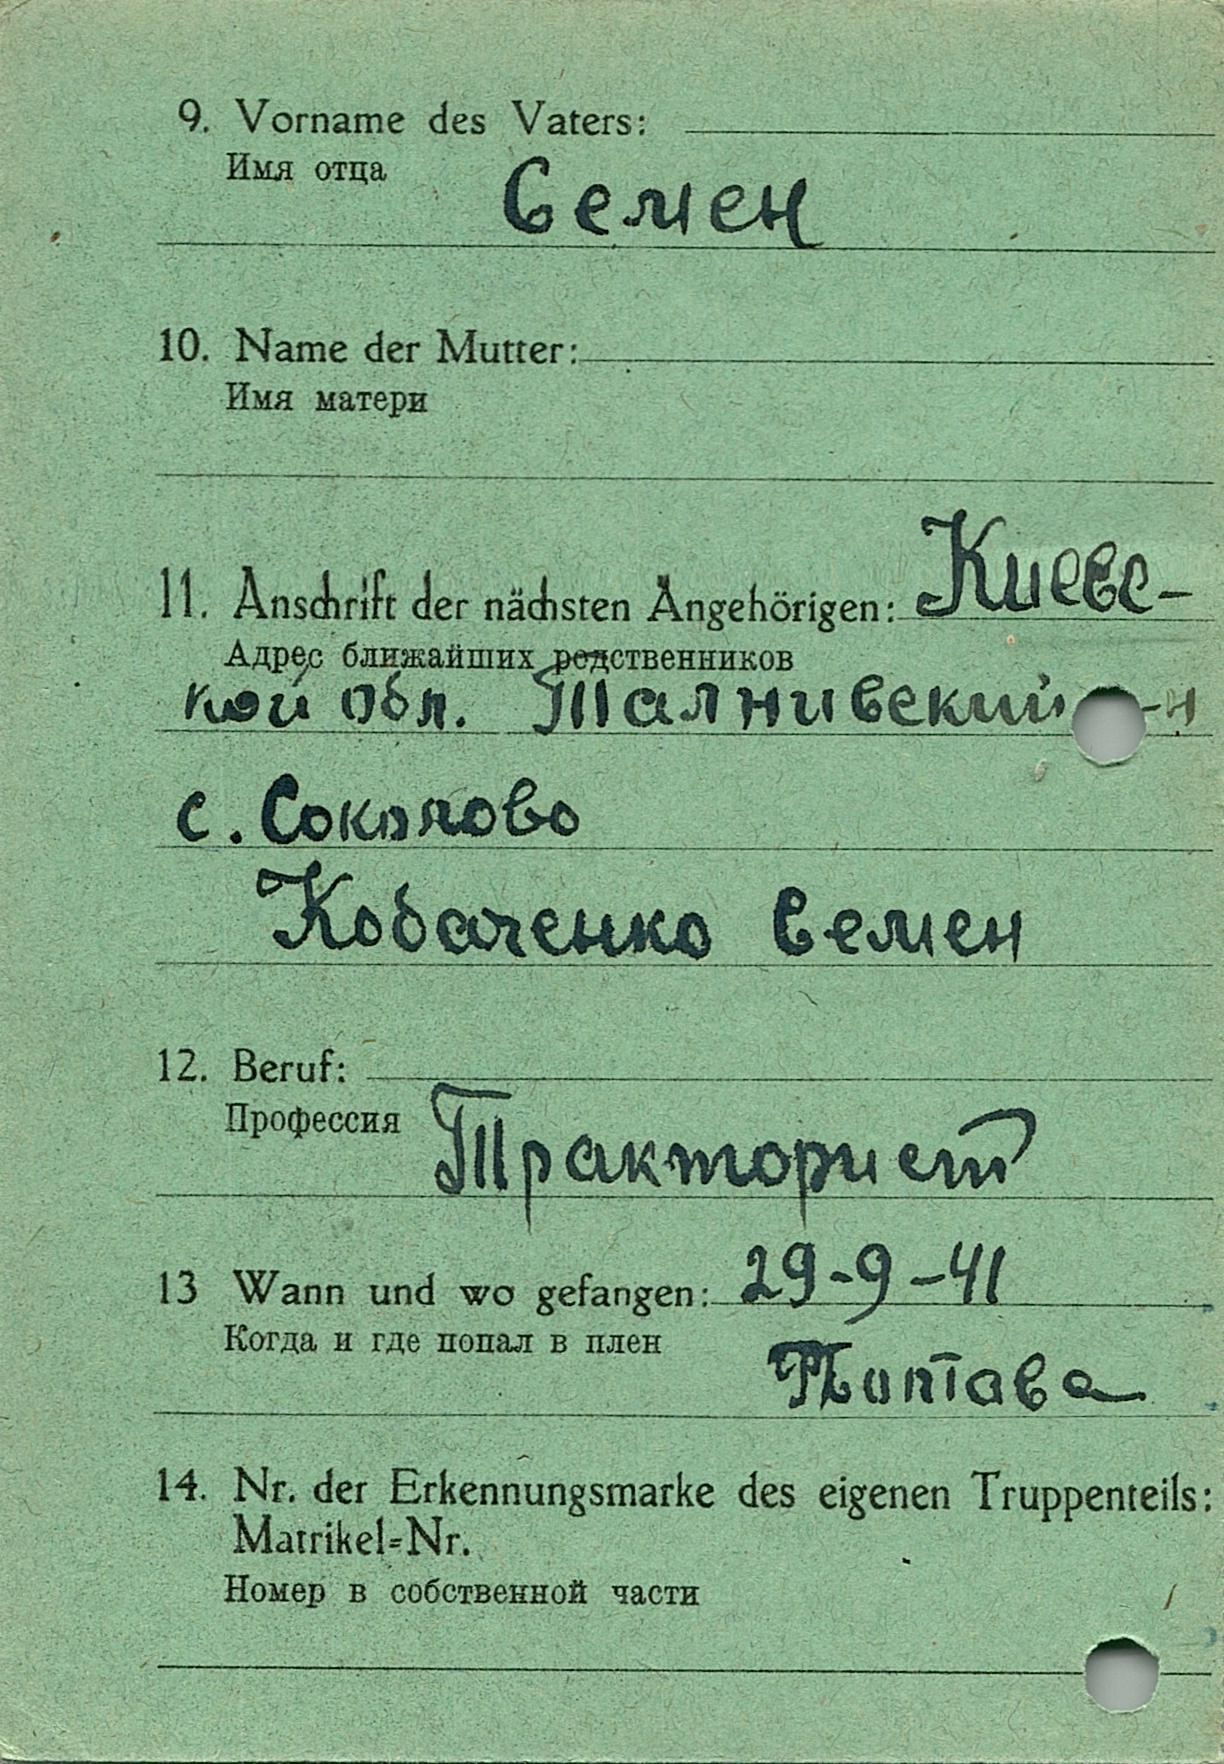 9. Vorname des Vaters:
Имя отца
Семен
10. Name der Mutter:
Имя матери
11. Anschrift der nächsten Angehörigen: Киевс-
Адрес ближайших родственников
кой обл. Талнивский -н
с. Соколово
Кобаченко Семен
12. Beruf:
Профессия
Тракторист
13 Wann und wo gefangen: 29-9-41
Когда и где попал в плен
Полтава
14. Nr. der Erkennungsmarke des eigenen Truppenteils:
Matrikel=Nr.
Номер в собственной части